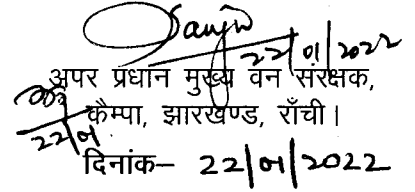 Sanjiv
22/01/2022
अपर प्रधान मुख्य वन संरक्षक,
कैम्पा, झारखण्ड, राँची।
22/01
दिनांक– 22/01/2022